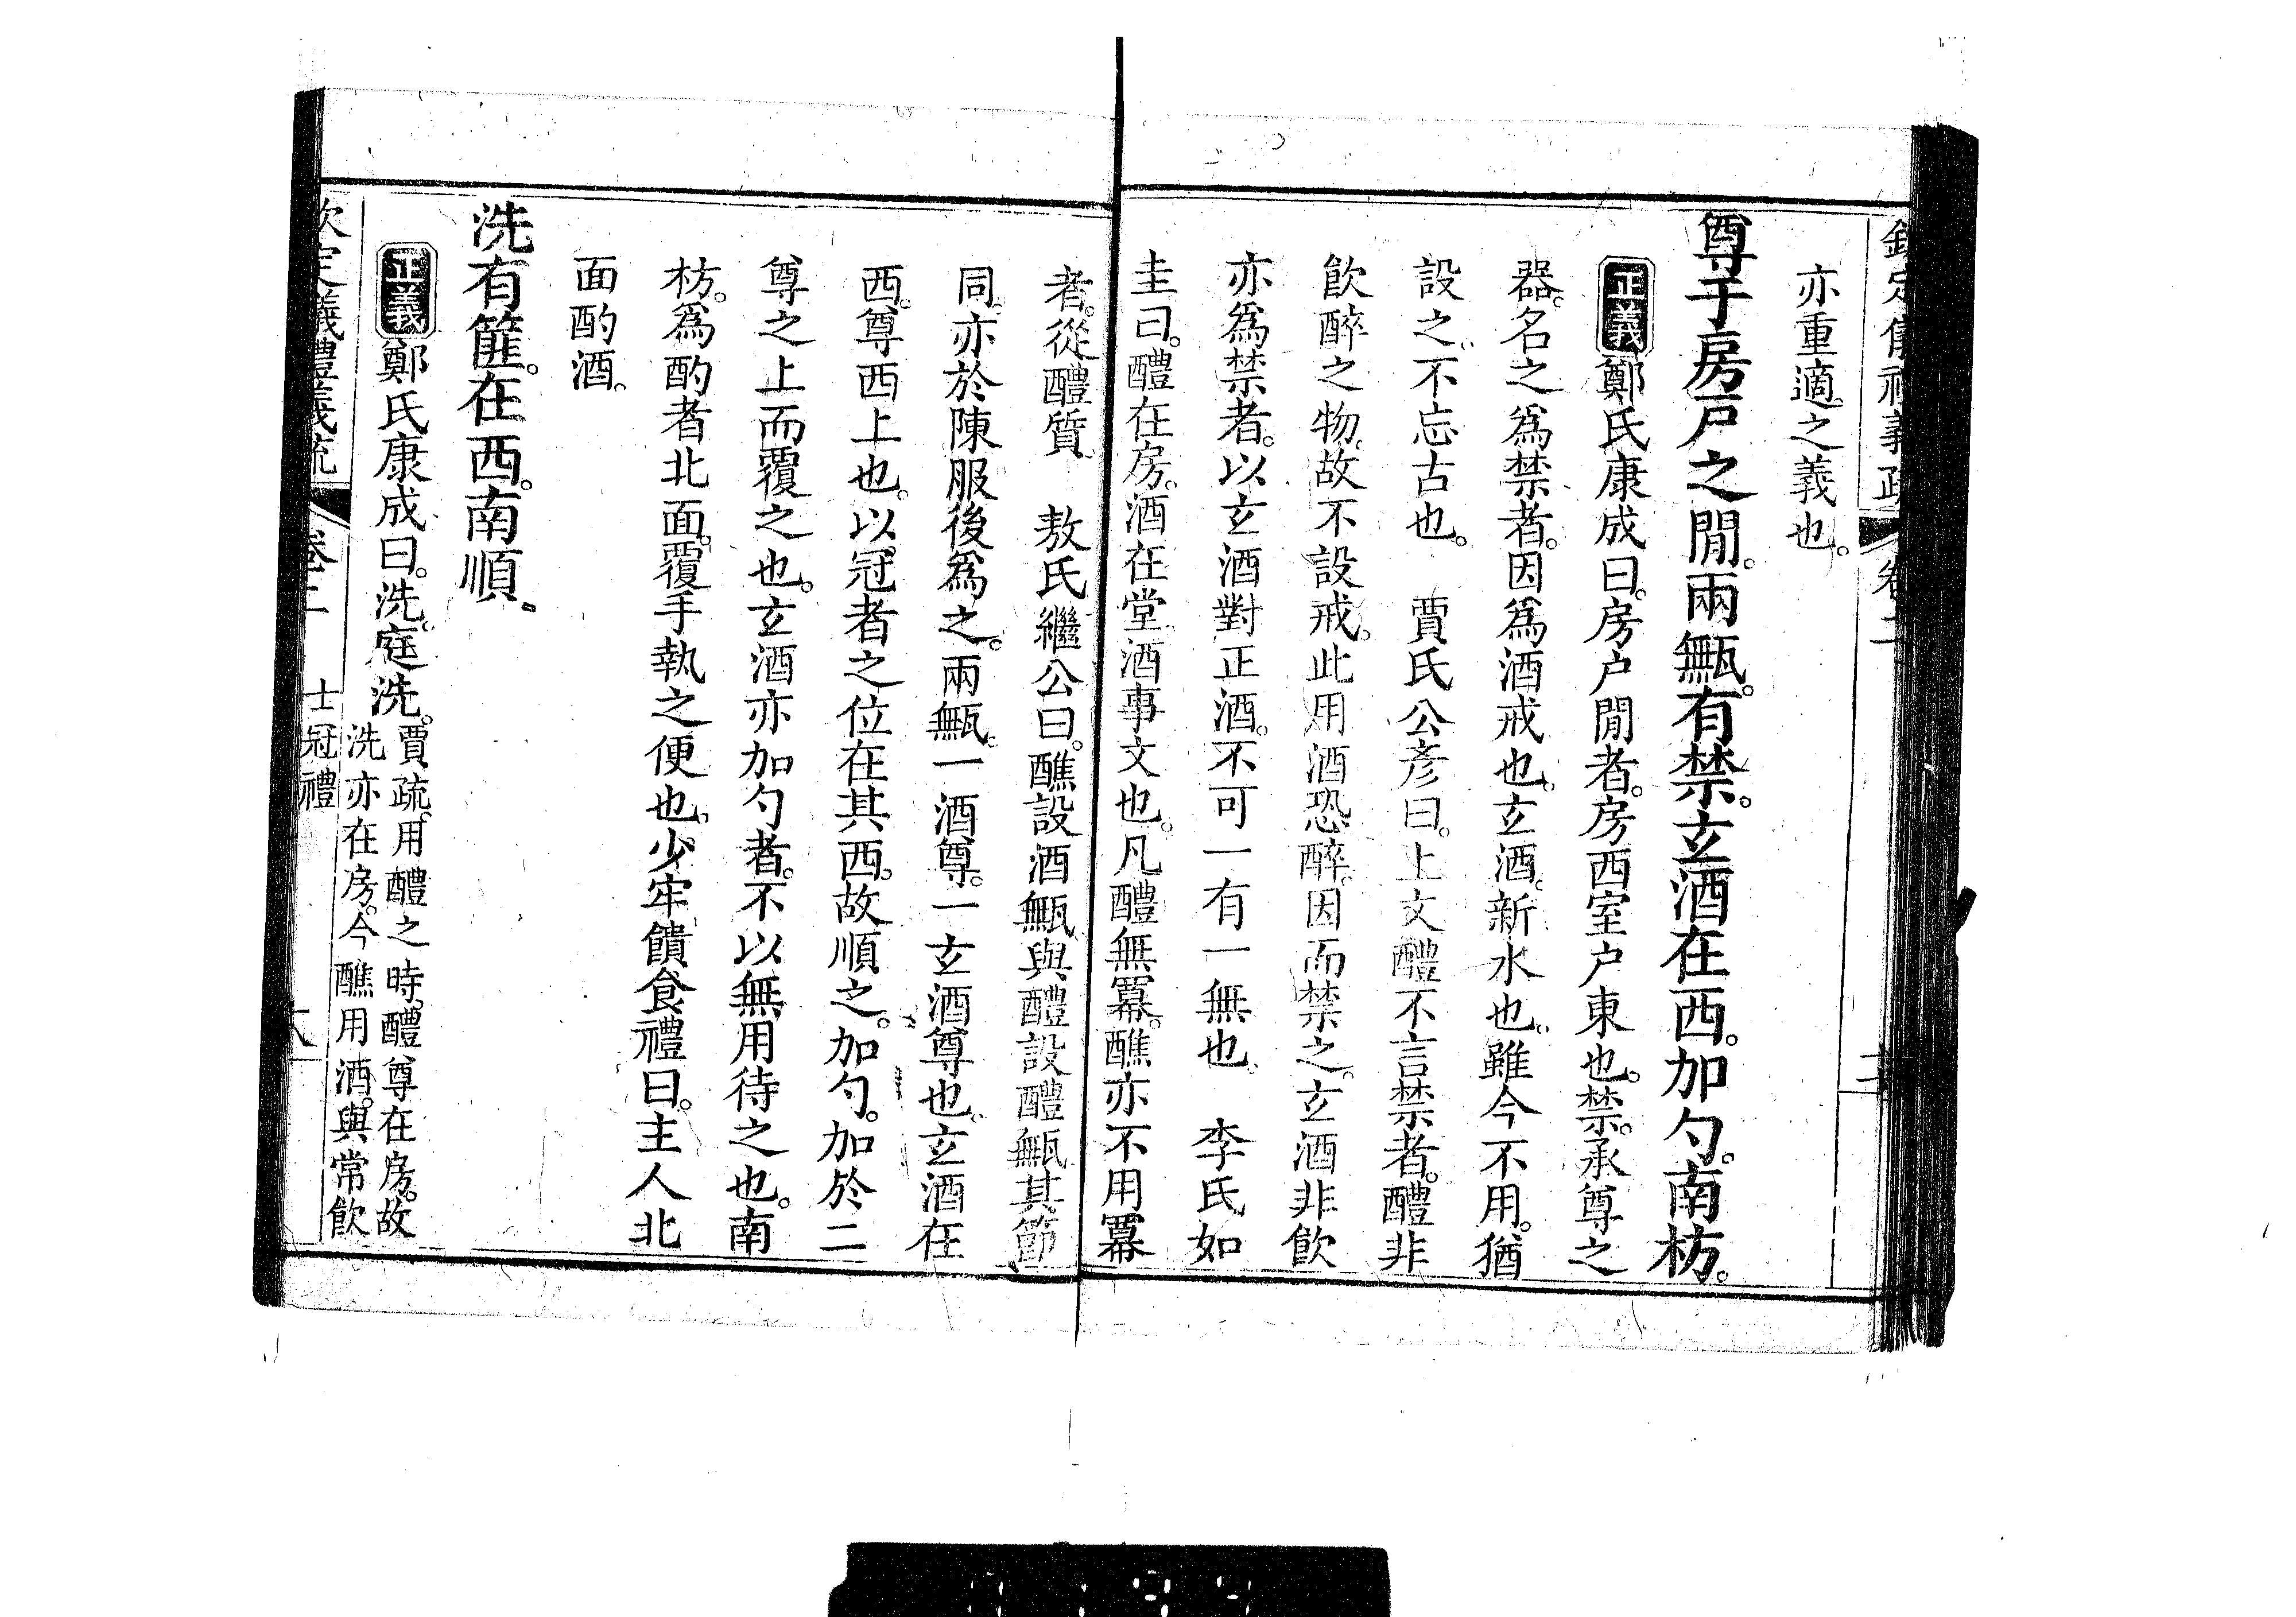 亦重適之義也。
尊于房戸之閒。兩甒。有禁。玄酒在西。加勺。南枋。
正義鄭氏康成曰。房户閒者。房西室户東也。禁。承尊之
器。名之爲禁者。因爲酒戒也。玄酒。新水也。雖今不用。猶
設之。不忘古也。　賈氏公彥曰。上文醴不言禁者。醴非
飮醉之物。故不設戒。此用酒恐醉。因而禁之。玄酒非飮
亦爲禁者。以玄酒對正酒。不可一有一無也　李氏如
圭曰。醴在房。酒在堂。酒事文也。凡醴無冪。醮亦不用冪
者。從醴質　敖氏繼公曰。醮設酒甒與醴設醴甒其節
同。亦於陳服後爲之。兩甒。一酒尊。一玄酒尊也。玄酒在
西。尊西上也。以冠者之位在其西。故順之。加勺。加於二
尊之上而覆之也。玄酒亦加勺者。不以無用待之也。南
枋。爲酌者北面。覆手執之便也。少牢饋食禮曰。主人北
面酌酒。
洗有篚。在西。南順。
正義鄭氏康成曰。洗。庭洗。賈疏。用醴之時。醴尊在房。故
洗亦在房。今醮用酒。與常飮
欽定儀禮義疏　卷二　士冠禮